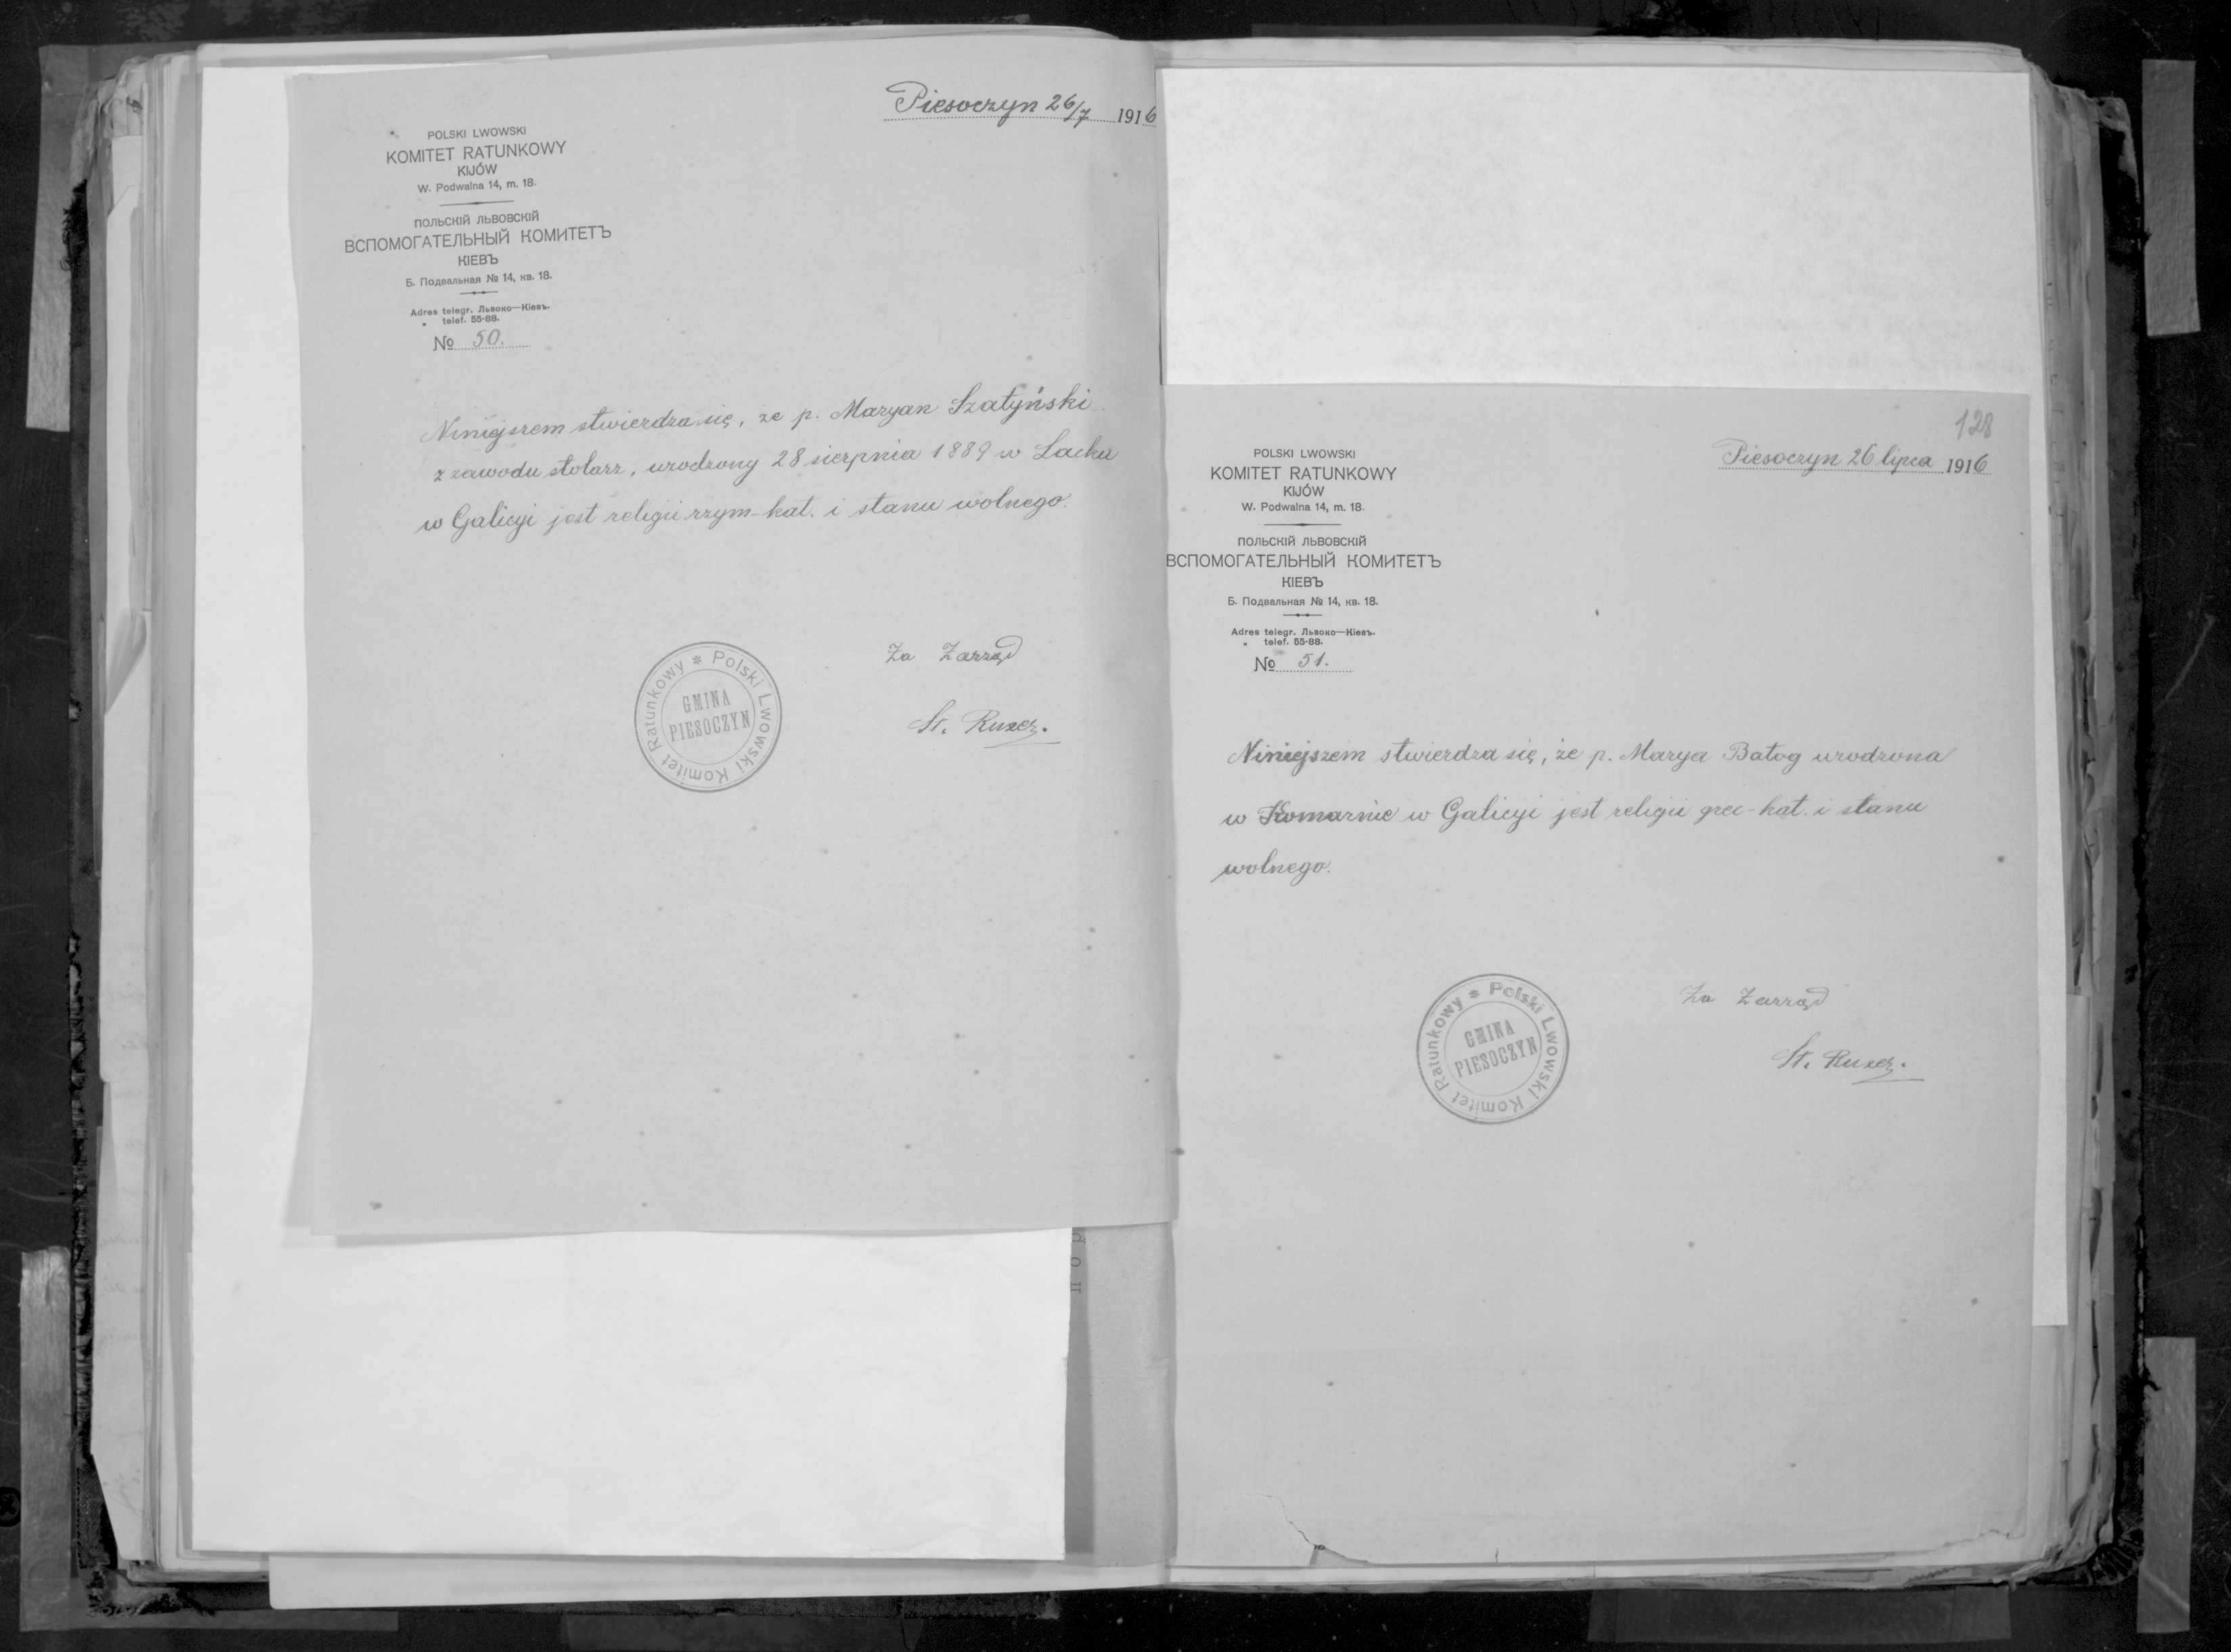 Piesoczyn 26/7 1916
POLSKI LWOWSKI
KOMITET RATUNKOWY
KIJÓW
W. Podwalna 14, m. 18.
ПОЛЬСКІЙ ЛЬВОВСКІЙ
ВСПОМОГАТЕЛЬНЫЙ КОМИТЕТЪ
КІЕВЪ
Б. Подвальная № 14, кв. 18.
Adres telegr. Львоко—Кіевъ.
" telef. 55-88.
№ 50.
Niniejszem stwierdza się, że p. Maryan Szatyński
z zawodu stolarz, urodzony 28 sierpnia 1889 w Lacku
w Galicyi jest religii rzym-kat. i stanu wolnego.
Za Zarząd
Polski Lwowski Komitet Ratunkowy
GMINA
PIESOCZYN
St. Ruxer.
128
Piesoczyn 26 lipca 1916
POLSKI LWOWSKI
KOMITET RATUNKOWY
KIJÓW
W. Podwalna 14, m. 18.
ПОЛЬСКІЙ ЛЬВОВСКІЙ
ВСПОМОГАТЕЛЬНЫЙ КОМИТЕТЪ
КІЕВЪ
Б. Подвальная № 14, кв. 18.
Adres telegr. Львоко—Кіевъ.
" telef. 55-88.
№ 51.
Niniejszem stwierdza się, że p. Marya Batog urodzona
w Komarnie w Galicyi jest religii grec-kat. i stanu
wolnego.
Za Zarząd
Polski Lwowski Komitet Ratunkowy
GMINA
PIESOCZYN
St. Ruxer.